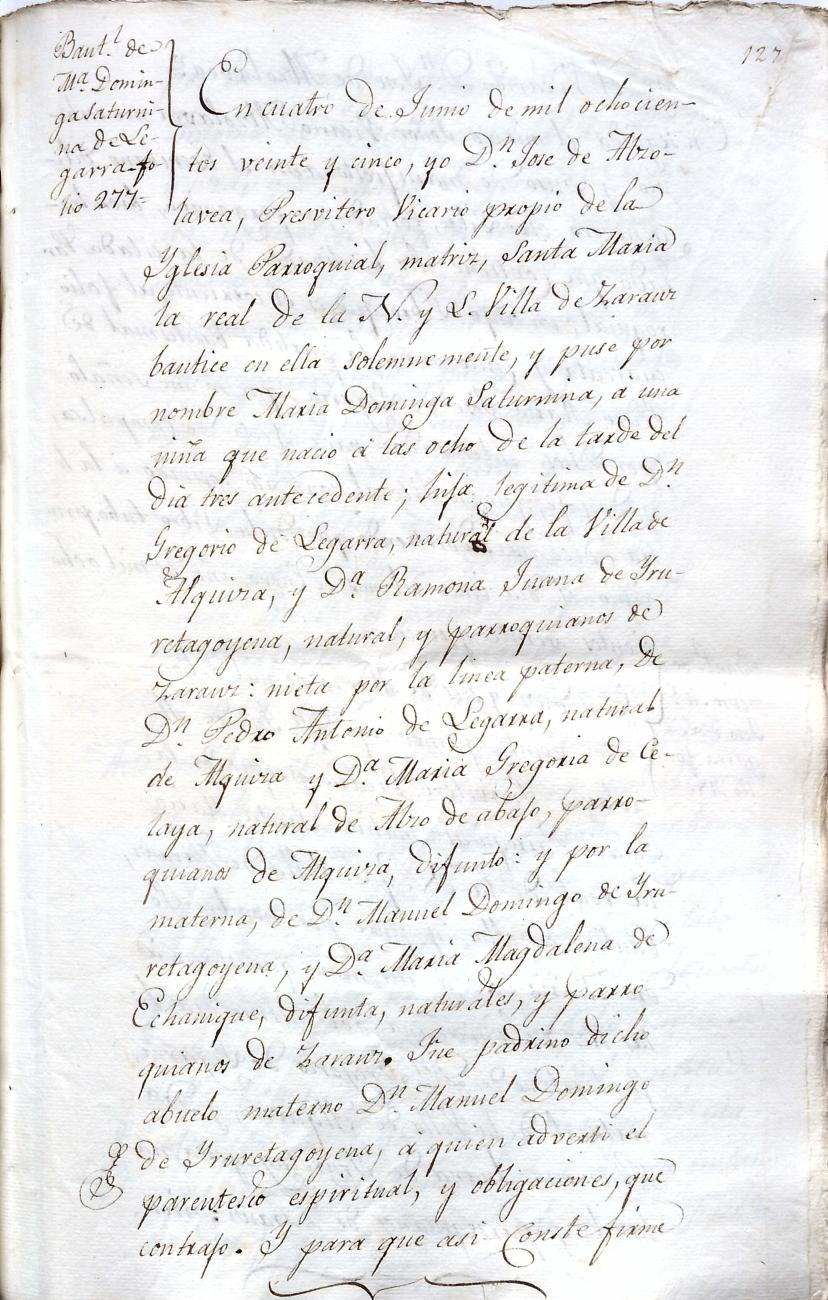 127
Baut.l de
M.a Domin-
ga Saturni-
na de Le-
garra fo
lio 277=
En cuatro de Junio de mil ochocien-
tos veinte y cinco, yo D.n Jose de Abzo-
lavea, Presvitero Vicario propio de la
Yglesia Parroquial, matriz, Santa Maria
la real de la N. y L. Villa de Zarauz
bautice en ella solemnemente, y puse por
nombre Maria Dominga Saturnina, a una
niña que nacio á las ocho de la tarde del
dia tres antecedente; hija legitima de D.n
Gregorio de Legarra, natural de la Villa de
Alquiza, y D.a Ramona Juana de Yru-
retagoyena, natural, y parroquianos de
Zarauz: nieta por la linea paterna, de
D.n Pedro Antonio de Legarra, natural
de Alquiza y D.a Maria Gregoria de Ce-
laya, natural de Abzo de abajo, parro-
quianos de Alquiza, difunto: y por la
materna, de D.n Manuel Domingo de Yru-
retagoyena, y D.a Maria Magdalena de
Echanique, difunta, naturales, y parro-
quianos de Zarauz. Fue padrino dicho
abuelo materno D.n Manuel Domingo
de Yruretagoyena, á quien adverti el
parentesco espiritual, y obligaciones, que
contrajo. Y para que asi Conste firme